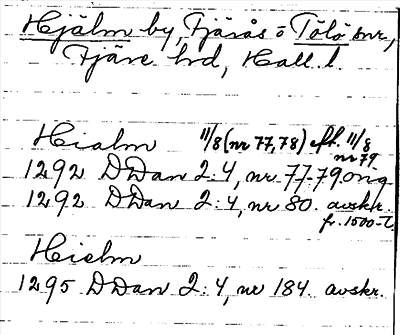 Hjälm by, Fjärås o Tölö snr,
Fjäre hd, Hall. l.
Hialm 11/8 (nr 77, 78) eft. 11/8
nr 79
1292 DDan 2:4, nr 77-79 orig
1292 DDan 2:4, nr 80. avskr.
fr. 1500-t.
Hielm
1295 DDan 2:4, nr 184. avskr.